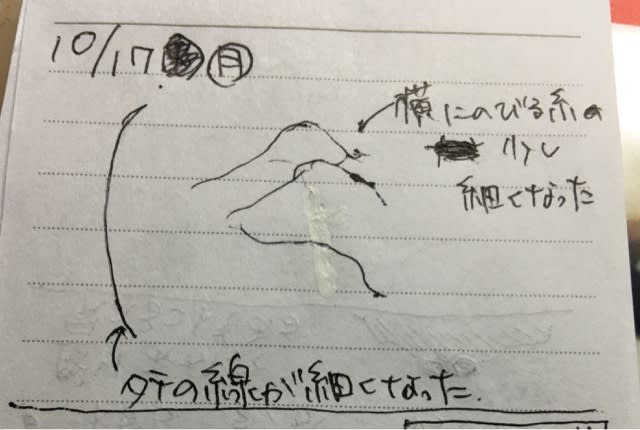 10/17 月
横にのびる糸の
少し
細くなった
タテの線が細くなった.